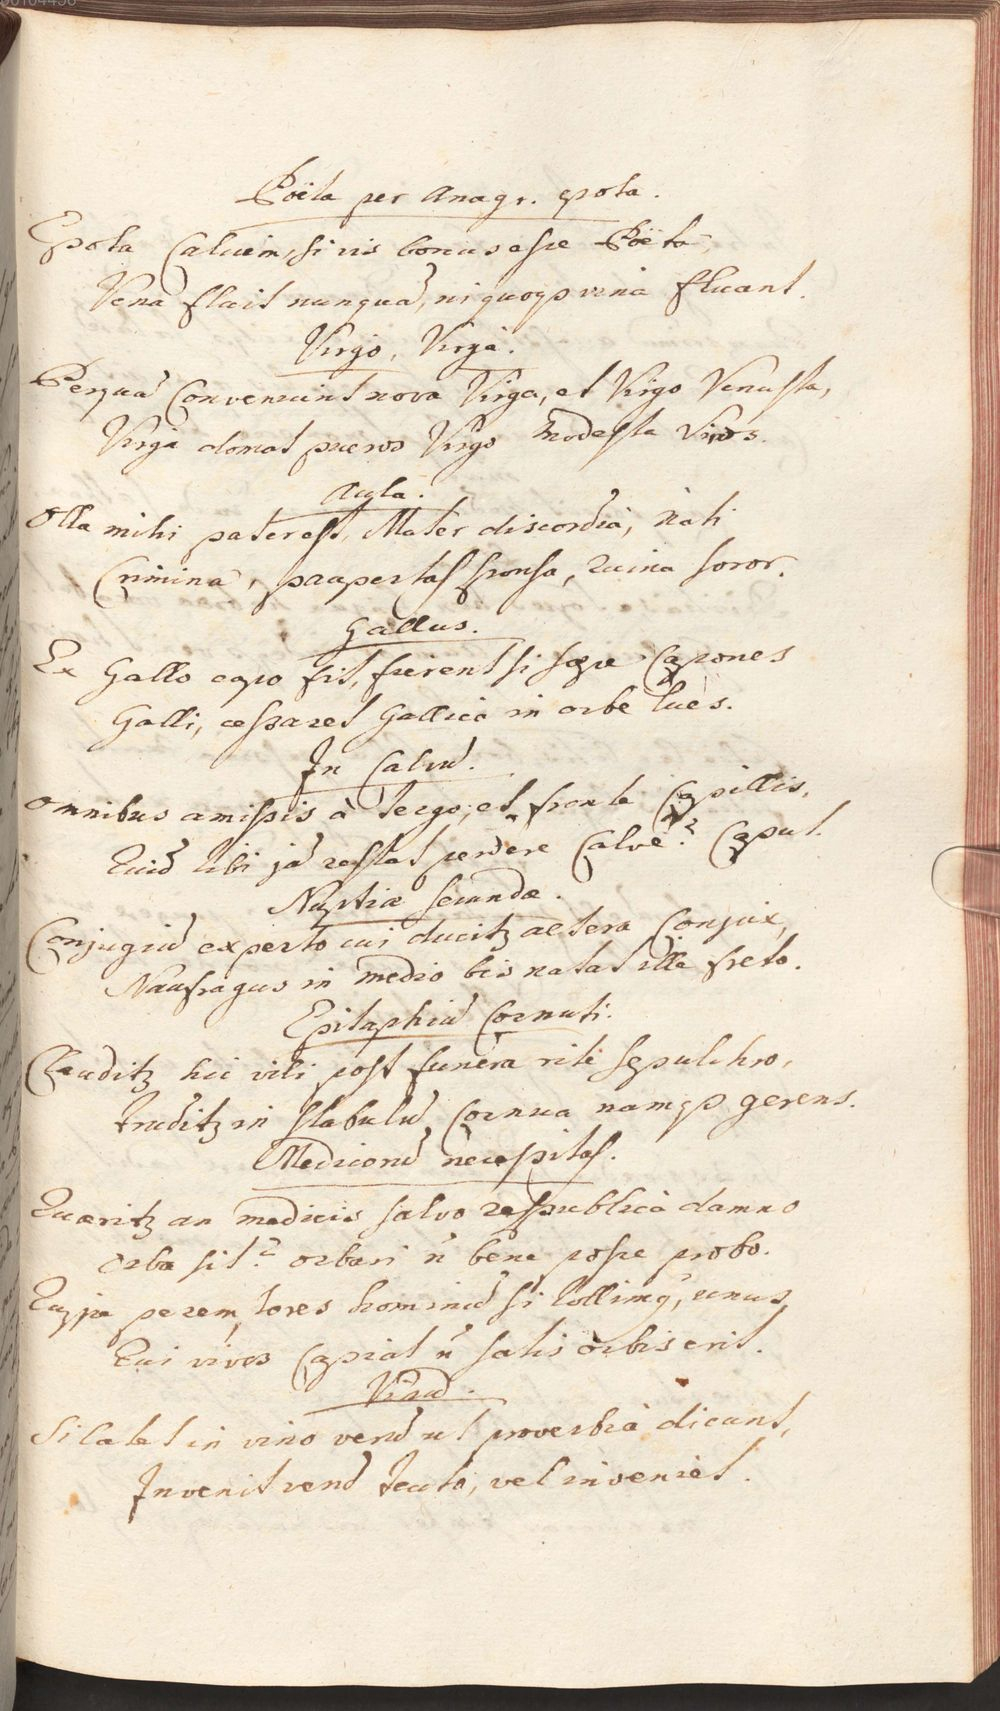 Poëta per Anagr. epota.
Epota Calicem, si vis bonus esse Poëta,
Vena fluit nunquã, ni quoqꝫ vina fluant.
Virgo, Virga.
Perquã Conveniunt nova Virga, et Virgo Venusta,
Virga domat pueros Virgo modesta Viros.
Aula.
Olla mihi pater est, Mater discordia, nati
Crimina, paupertas sponsa, ruina soror.
Gallus.
Ex Gallo capo fit, fierent si sæpe Capones
Galli, cessaret Gallica in orbe lues.
In Calvũ.
Omnibus amissis à tergo, et fronte Capillis,
Quid tibi jã restat perdere Calve? Caput.
Nuptiæ secundæ.
Conjugiũ experto cui ducitꝫ altera Conjux,
Naufragus in medio bis natat ille freto.
Epitaphiũ Cornuti.
Clauditꝫ hic vili post funera rite sepulchro,
Truditꝫ in stabulũ Cornua namqꝫ gerens.
Medicorũ necessitas.
Quæritꝫ an medicis salvo respublica damno
Orba sit? orbari ñ bene posse probo.
Quippe peremptores hominũ si tollimꝰ, unus
Qui vivos Capiat ñ satis orbis erit.
Vinũ.
Si latet in vino verũ ut proverbia dicunt,
Invenit verũ Teuto, vel inveniet.